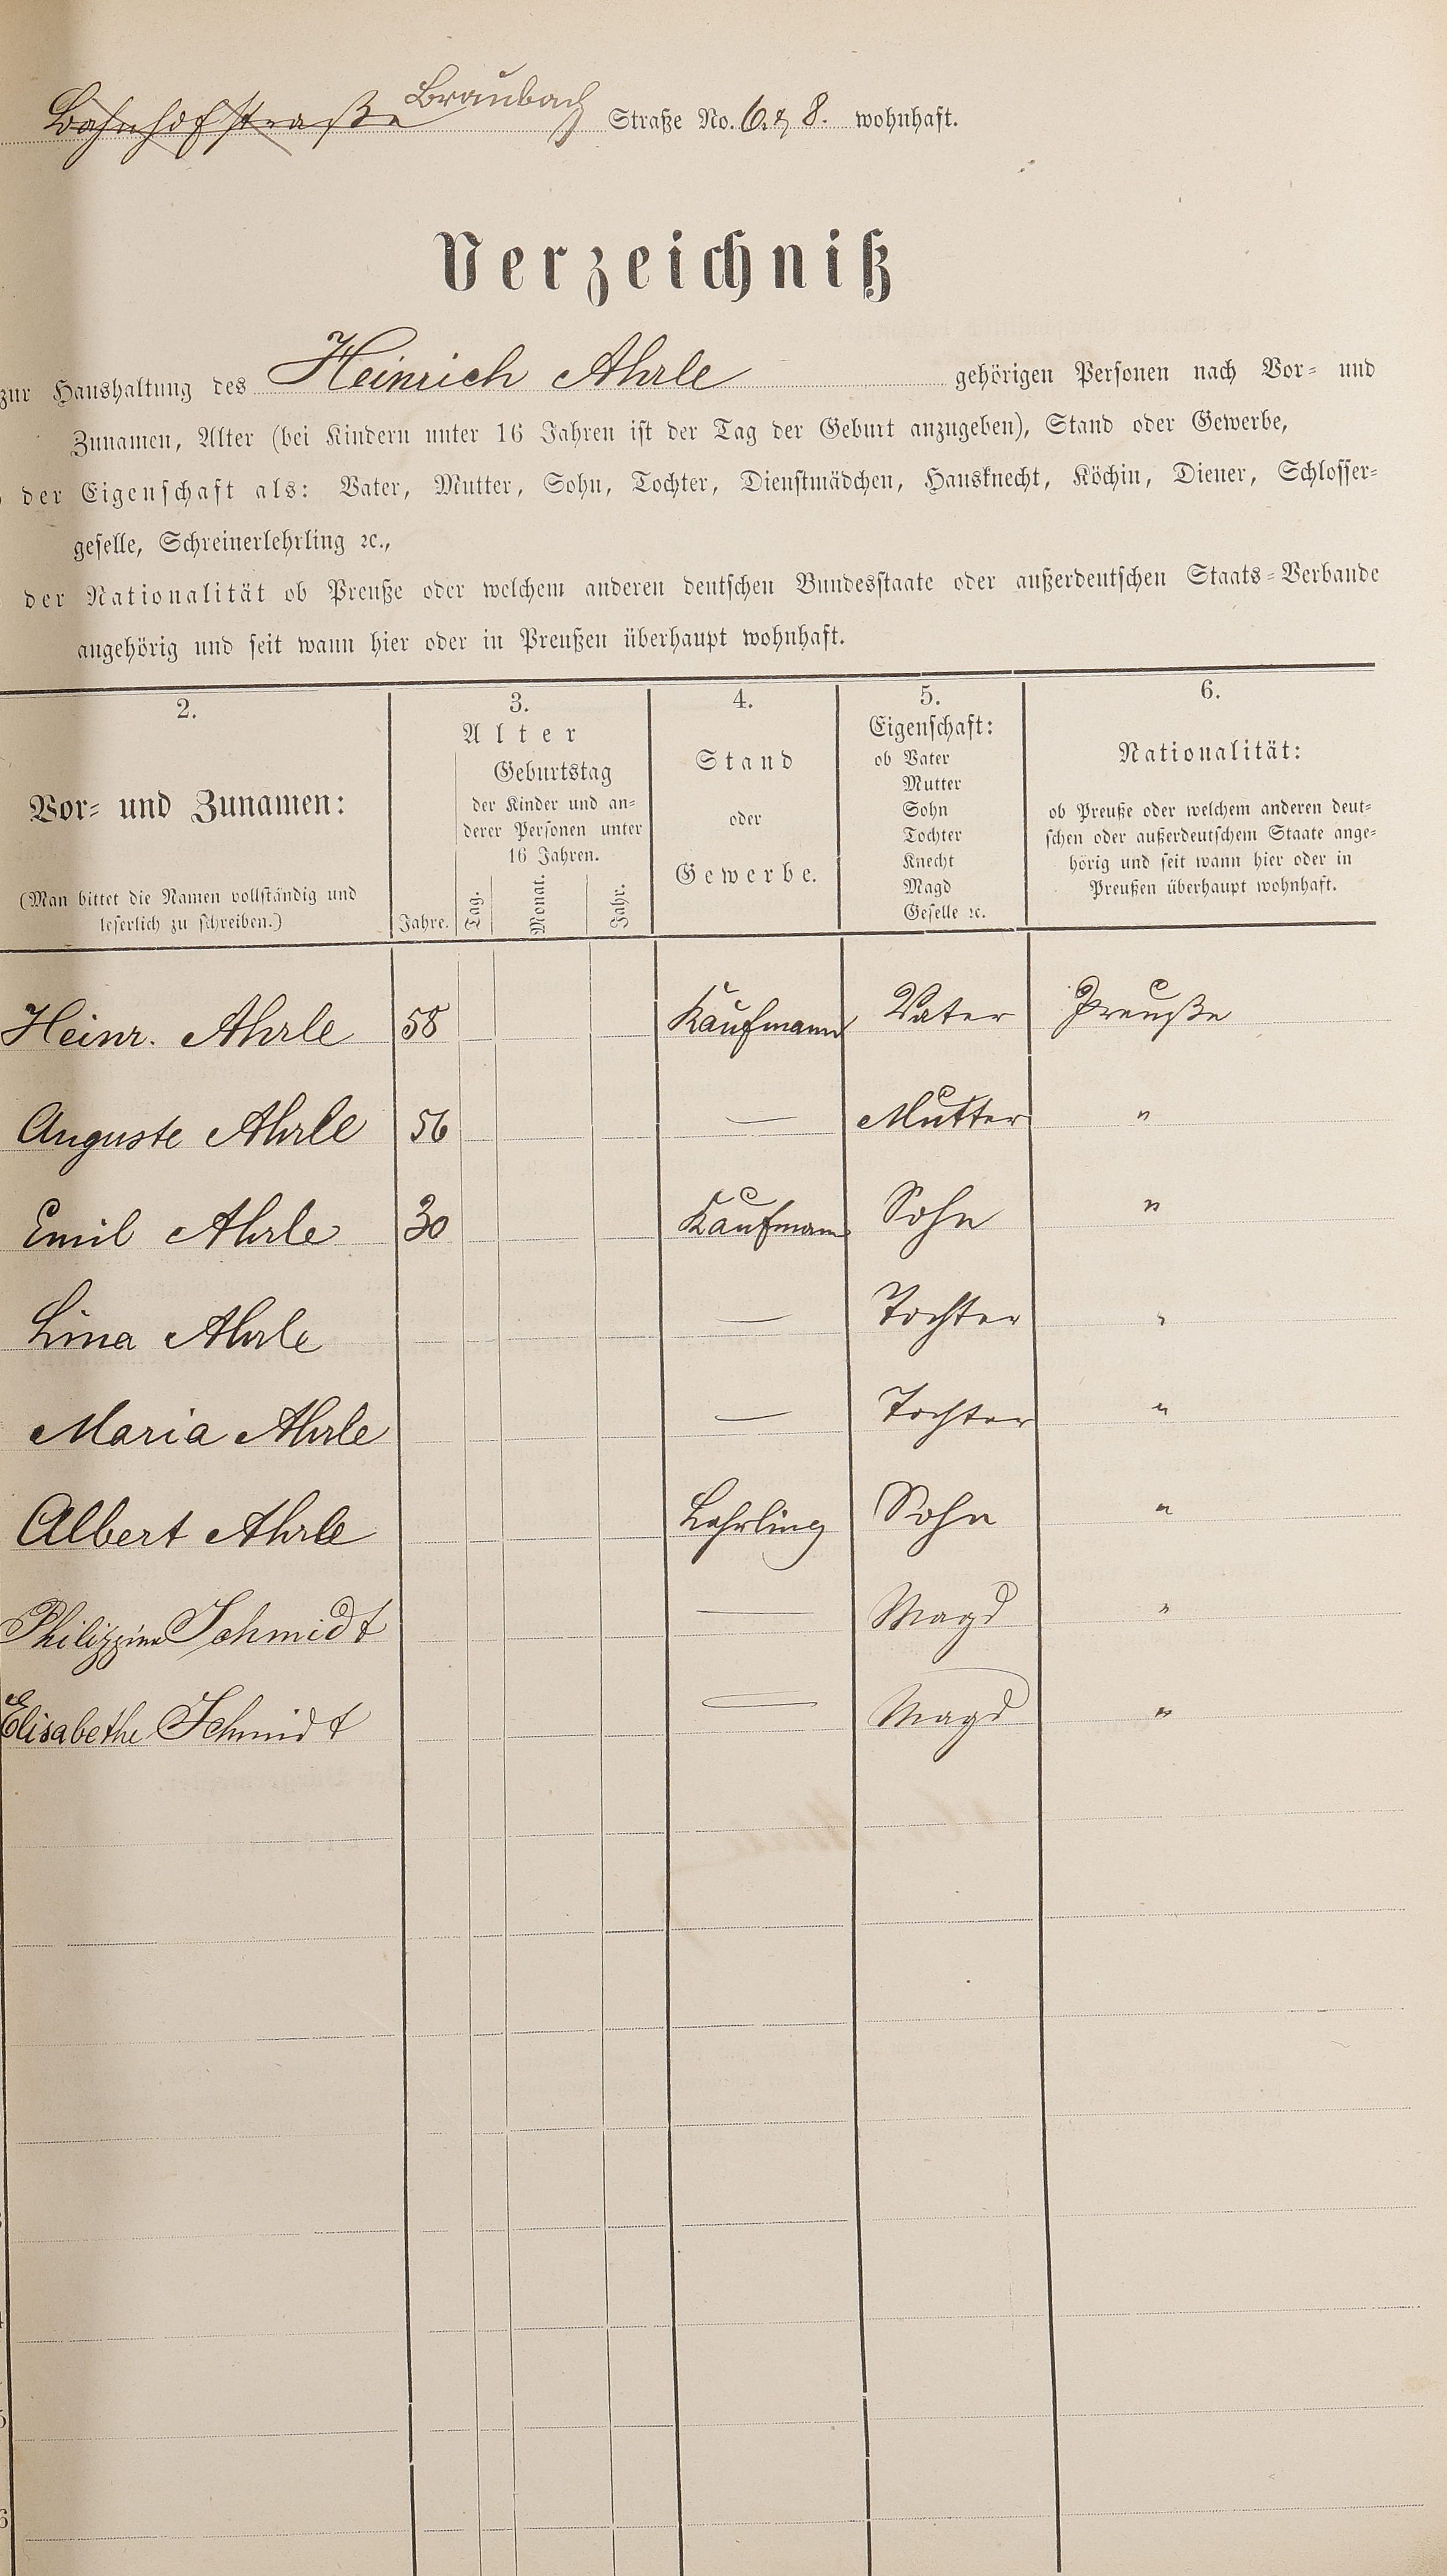 Bahnhofstraße Braubach Straße No. 6. & 8. wohnhaft.
Verzeichniß
zur Haushaltung des Heinrich Ahrle gehörigen Personen nach Vor- und
Zunamen, Alter (bei Kindern unter 16 Jahren ist der Tag der Geburt anzugeben), Stand oder Gewerbe,
der Eigenschaft als: Vater, Mutter, Sohn, Tochter, Dienstmädchen, Hausknecht, Köchin, Diener, Schlosser-
geselle, Schreinerlehrling ꝛc.,
der Nationalität ob Preuße oder welchem anderen deutschen Bundesstaate oder außerdeutschen Staats-Verbande
angehörig und seit wann hier oder in Preußen überhaupt wohnhaft.
2.
Vor- und Zunamen:
(Man bittet die Namen vollständig und
leserlich zu schreiben.)
3.
Alter
Geburtstag
der Kinder und an-
derer Personen unter
16 Jahren.
Jahre. Tag. Monat. Jahr.
4.
Stand
oder
Gewerbe.
5.
Eigenschaft:
ob Vater
Mutter
Sohn
Tochter
Knecht
Magd
Geselle ꝛc.
6.
Nationalität:
ob Preuße oder welchem anderen deut-
schen oder außerdeutschem Staate ange-
hörig und seit wann hier oder in
Preußen überhaupt wohnhaft.
Heinr. Ahrle 58 Kaufmann Vater Preuße
Auguste Ahrle 56 — Mutter "
Emil Ahrle 30 Kaufmann Sohn "
Lina Ahrle — Tochter "
Maria Ahrle — Tochter "
Albert Ahrle Lehrling Sohn "
Philippine Schmidt — Magd "
Elisabethe Schmidt — Magd "